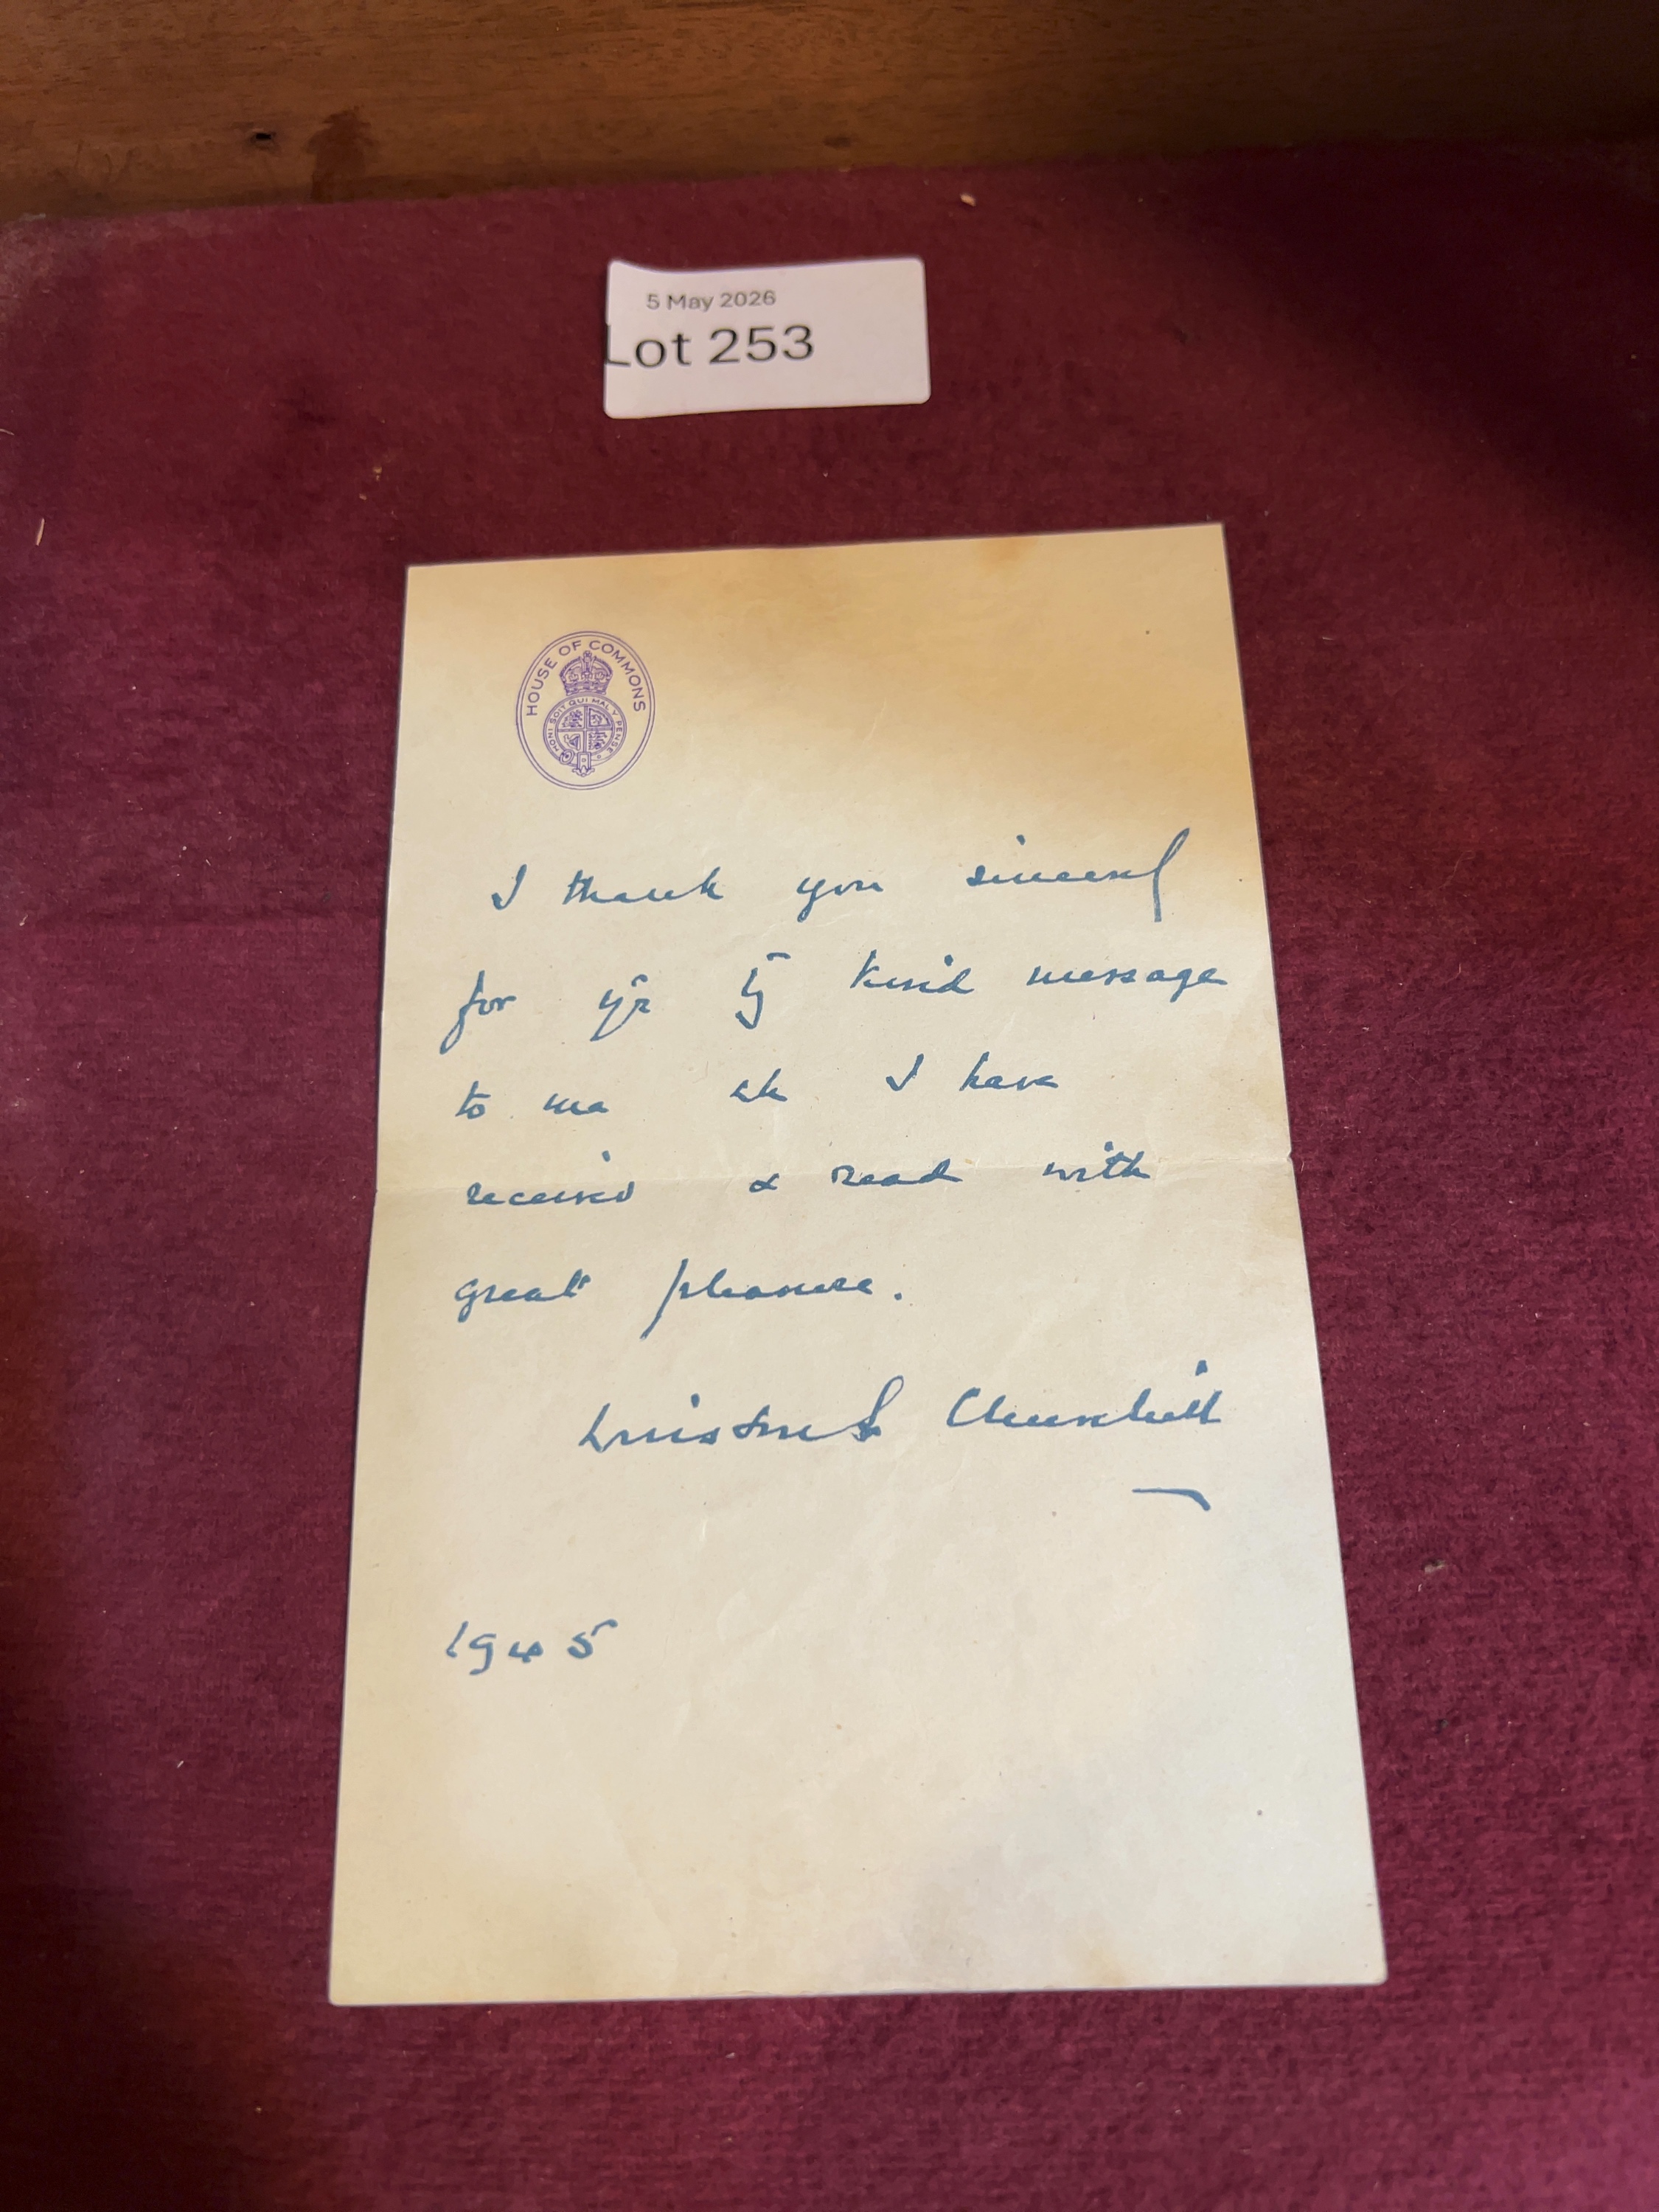 5 May 2026
Lot 253
HOUSE OF COMMONS
HONI SOIT QUI MAL Y PENSE
I thank you sincerely
for yr kind message
to me wh I have
received & read with
great pleasure.
Winston S. Churchill
1945